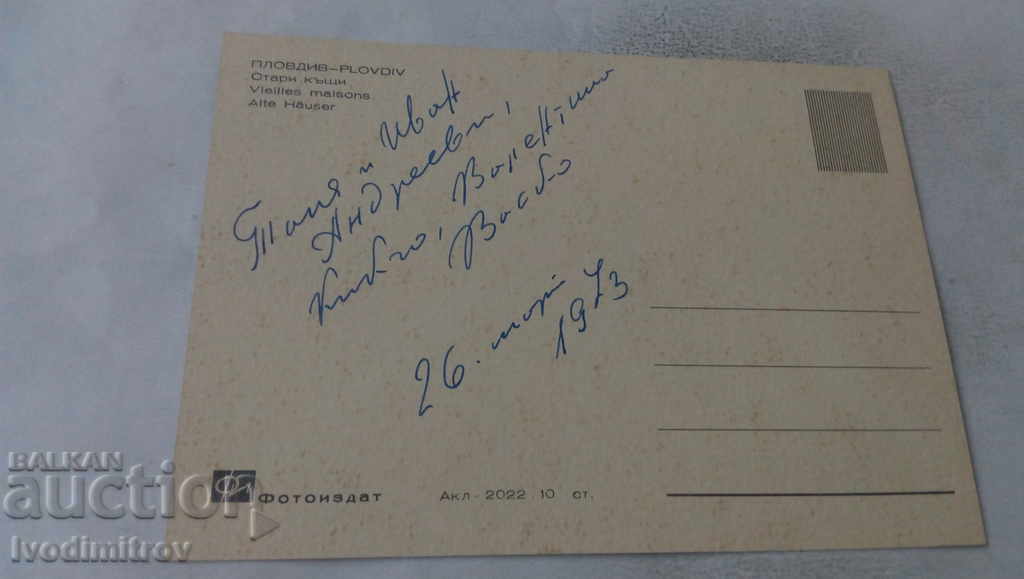 ПЛОВДИВ—PLOVDIV
Стари къщи
Vieilles maisons
Alte Häuser
Таня и Иван
Андрееви,
Валентина
26. март 1973
Фотоиздат
Акл-2022 10 ст.
BALKAN
auction
Ivodimitrov